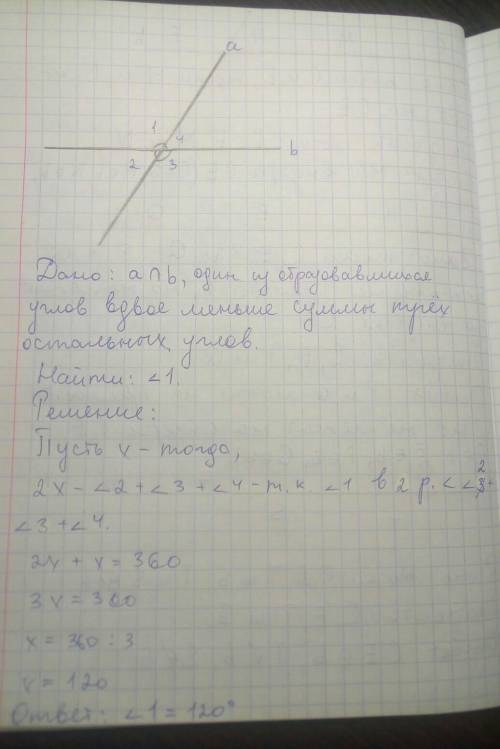 a
1 4
b
2 3
Дано: a∩b, один из образовавшихся
углов вдвое меньше суммы трёх
остальных углов.
Найти: ∠1.
Решение:
Пусть x - тогда,
2x - ∠2 + ∠3 + ∠4 - т.к. ∠1 в 2 р. < ∠2 +
∠3 + ∠4.
2x + x = 360
3x = 360
x = 360 : 3
x = 120
Ответ: ∠1 = 120°